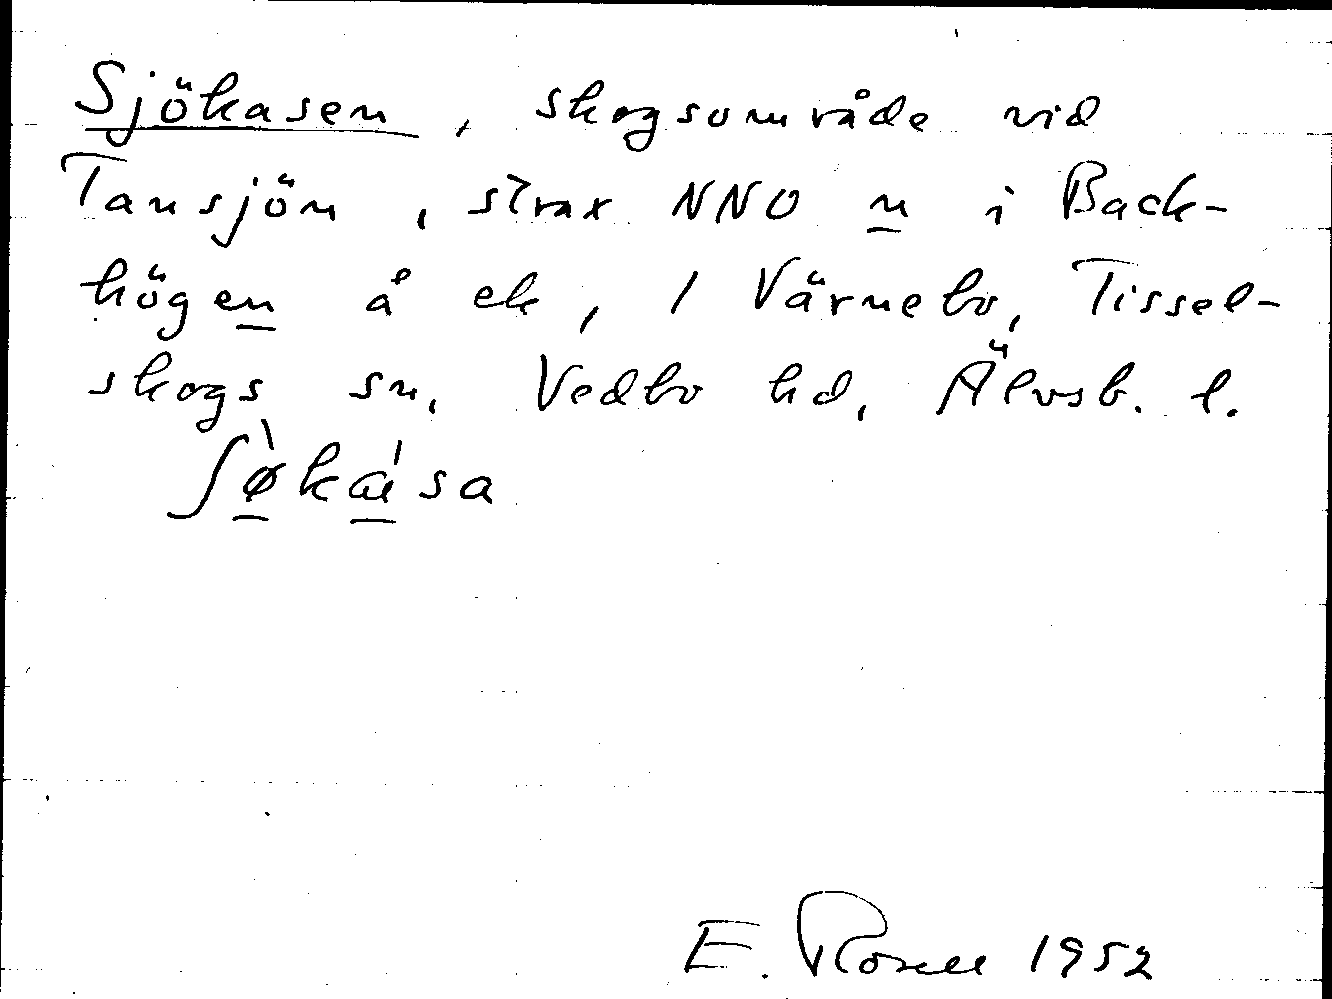 Sjökasen, skogsområde vid
Tansjön, strax NNO n i Back-
högen å ek, 1 Värnebo, Tissel-
skogs sn, Vedbo hd, Älvsb. l.
ʃø̀kæ̍sa
E. Rosell 1952